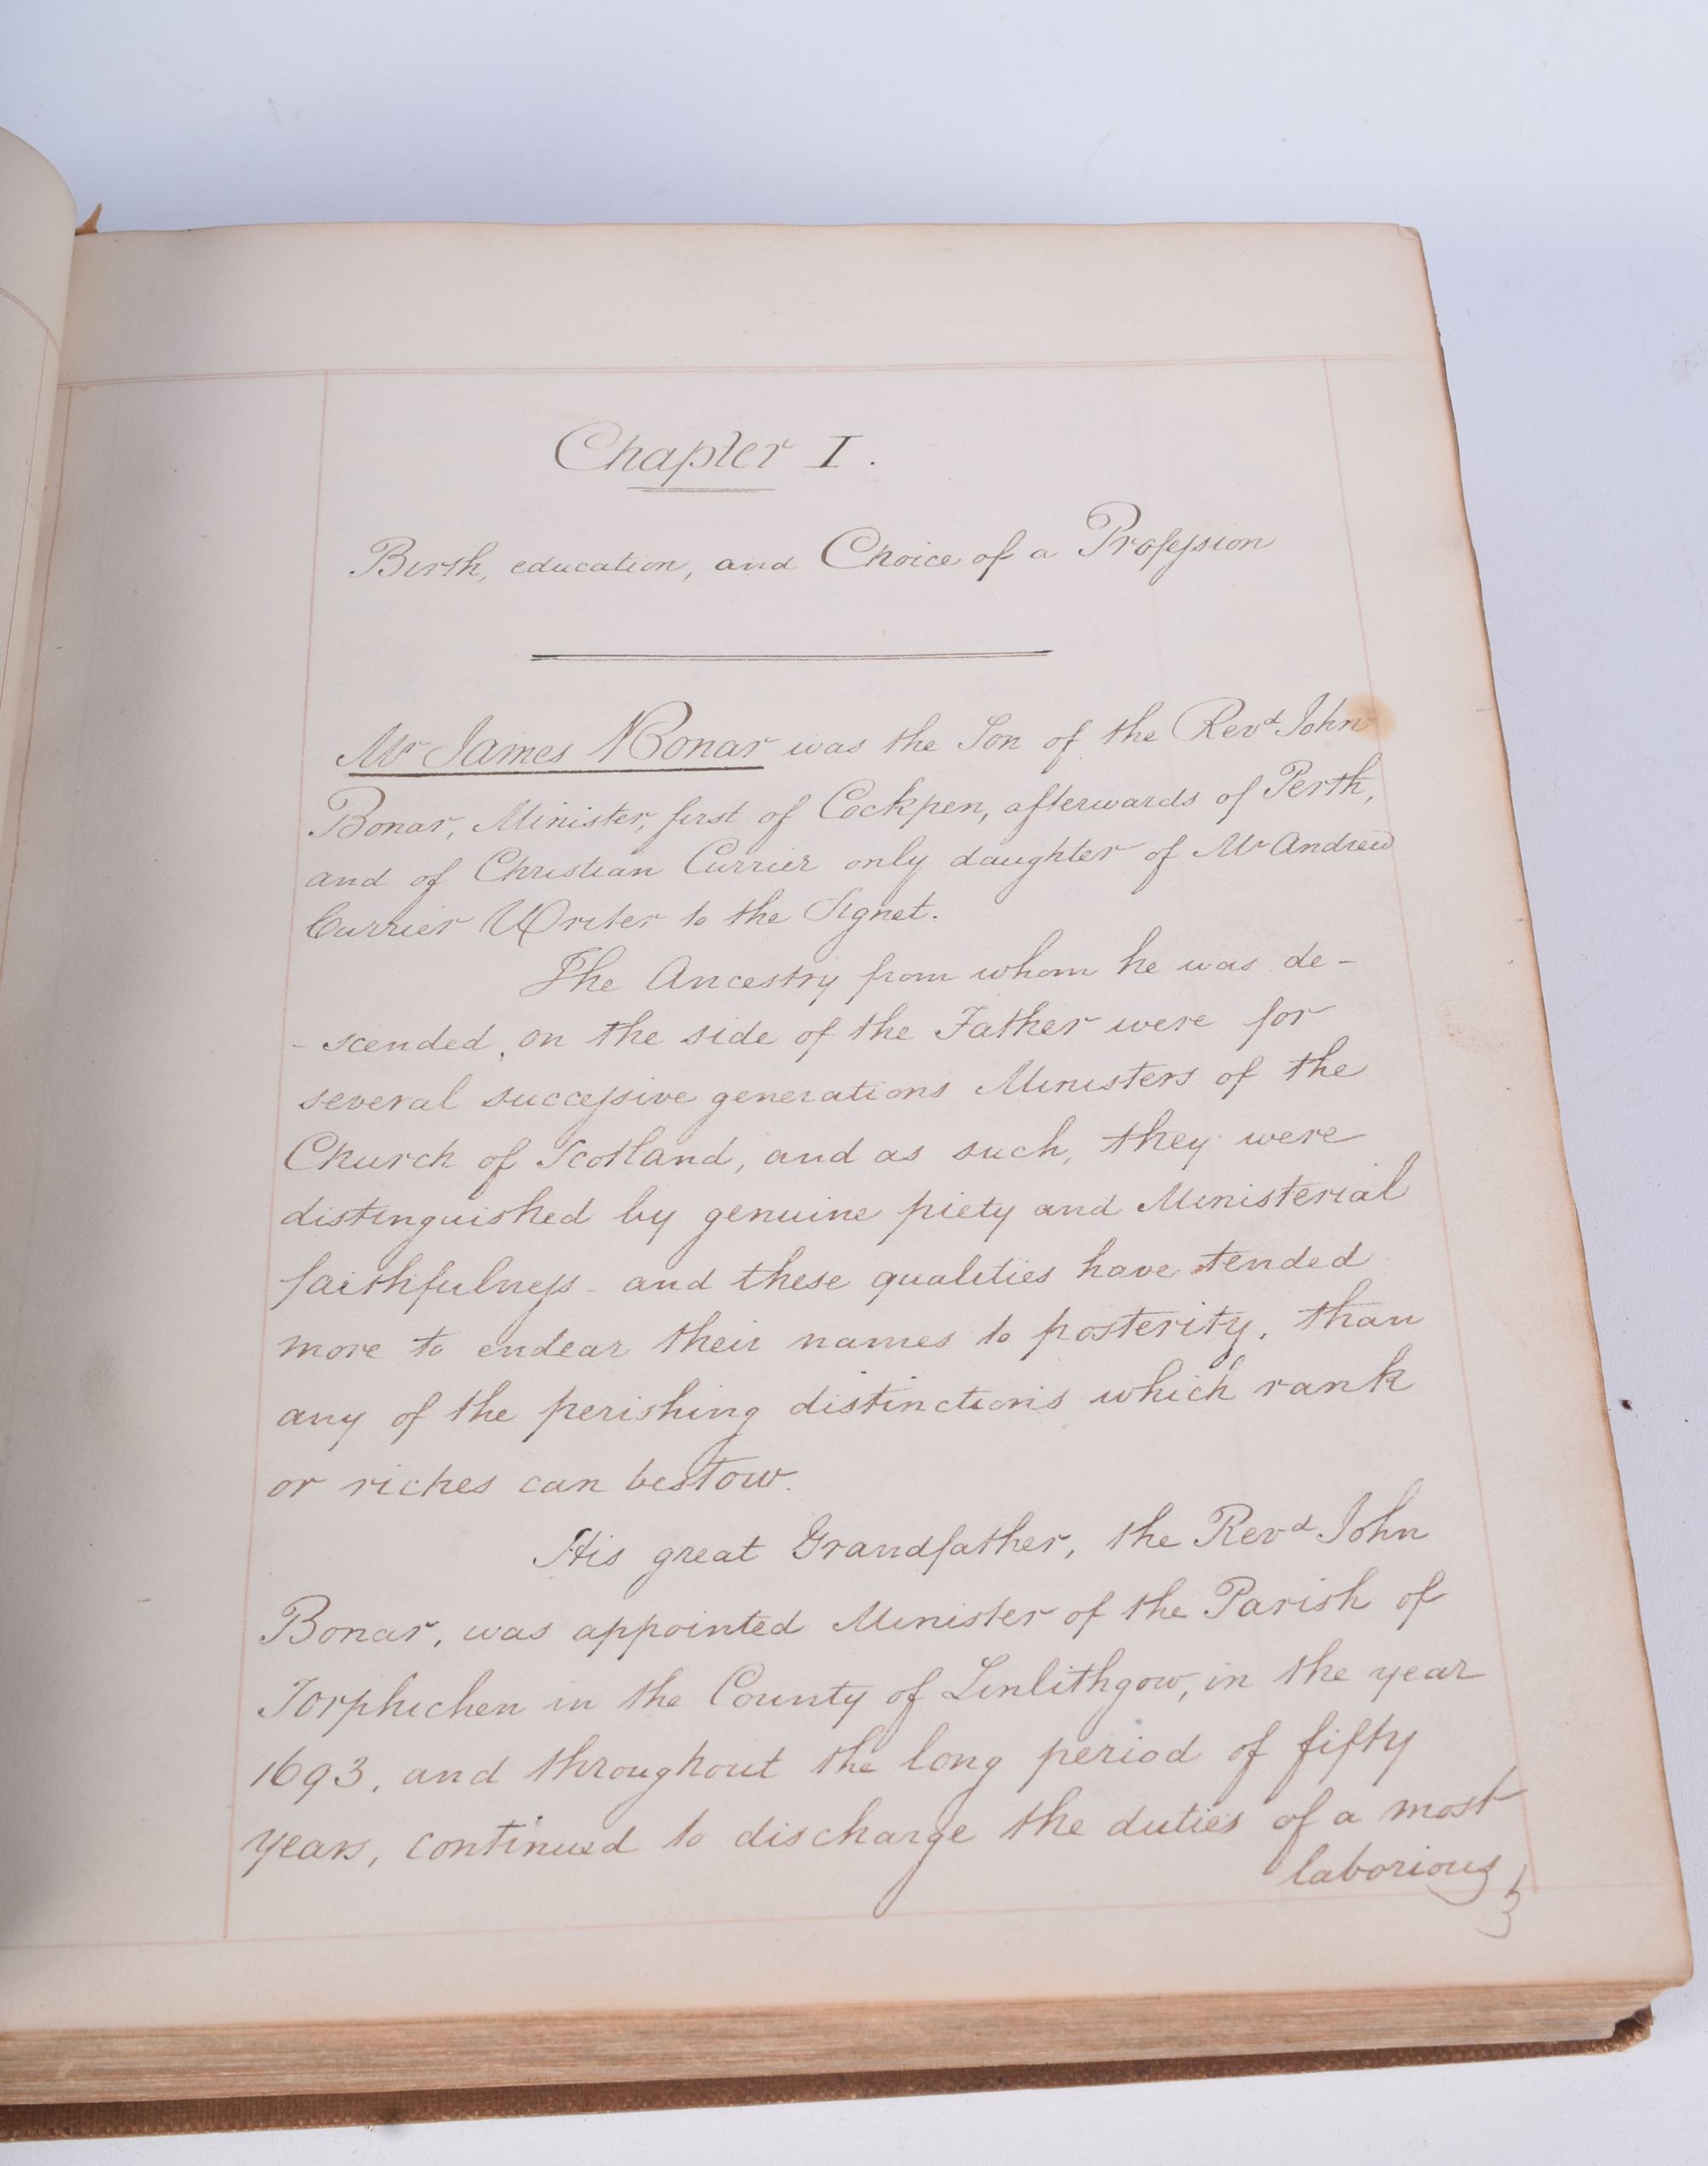 Chapter I.
Birth, education, and Choice of a Profession
Mr James Bonar was the Son of the Revd John
Bonar, Minister, first of Cockpen, afterwards of Perth,
and of Christian Currier only daughter of Mr Andrew
Currier Writer to the Signet.
The Ancestry from whom he was de-
-scended, on the side of the Father were for
several successive generations Ministers of the
Church of Scotland, and as such, they were
distinguished by genuine piety and Ministerial
faithfulness - and these qualities have tended
more to endear their names to posterity, than
any of the perishing distinctions which rank
or riches can bestow.
His great Grandfather, the Revd John
Bonar, was appointed Minister of the Parish of
Torphichen in the County of Linlithgow, in the year
1693, and throughout the long period of fifty
years, continued to discharge the duties of a most
laborious